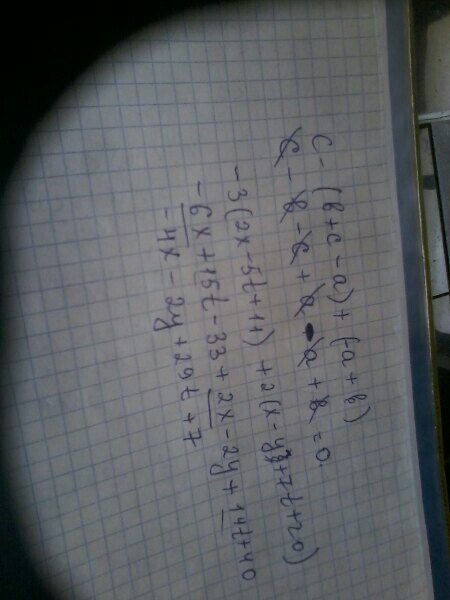 c - (b + c - a) + (-a + b)
c - b - c + a - a + b = 0.
-3(2x - 5t + 11) + 2(x - y + 7t + 20)
-6x + 15t - 33 + 2x - 2y + 14t + 40
-4x - 2y + 29t + 7